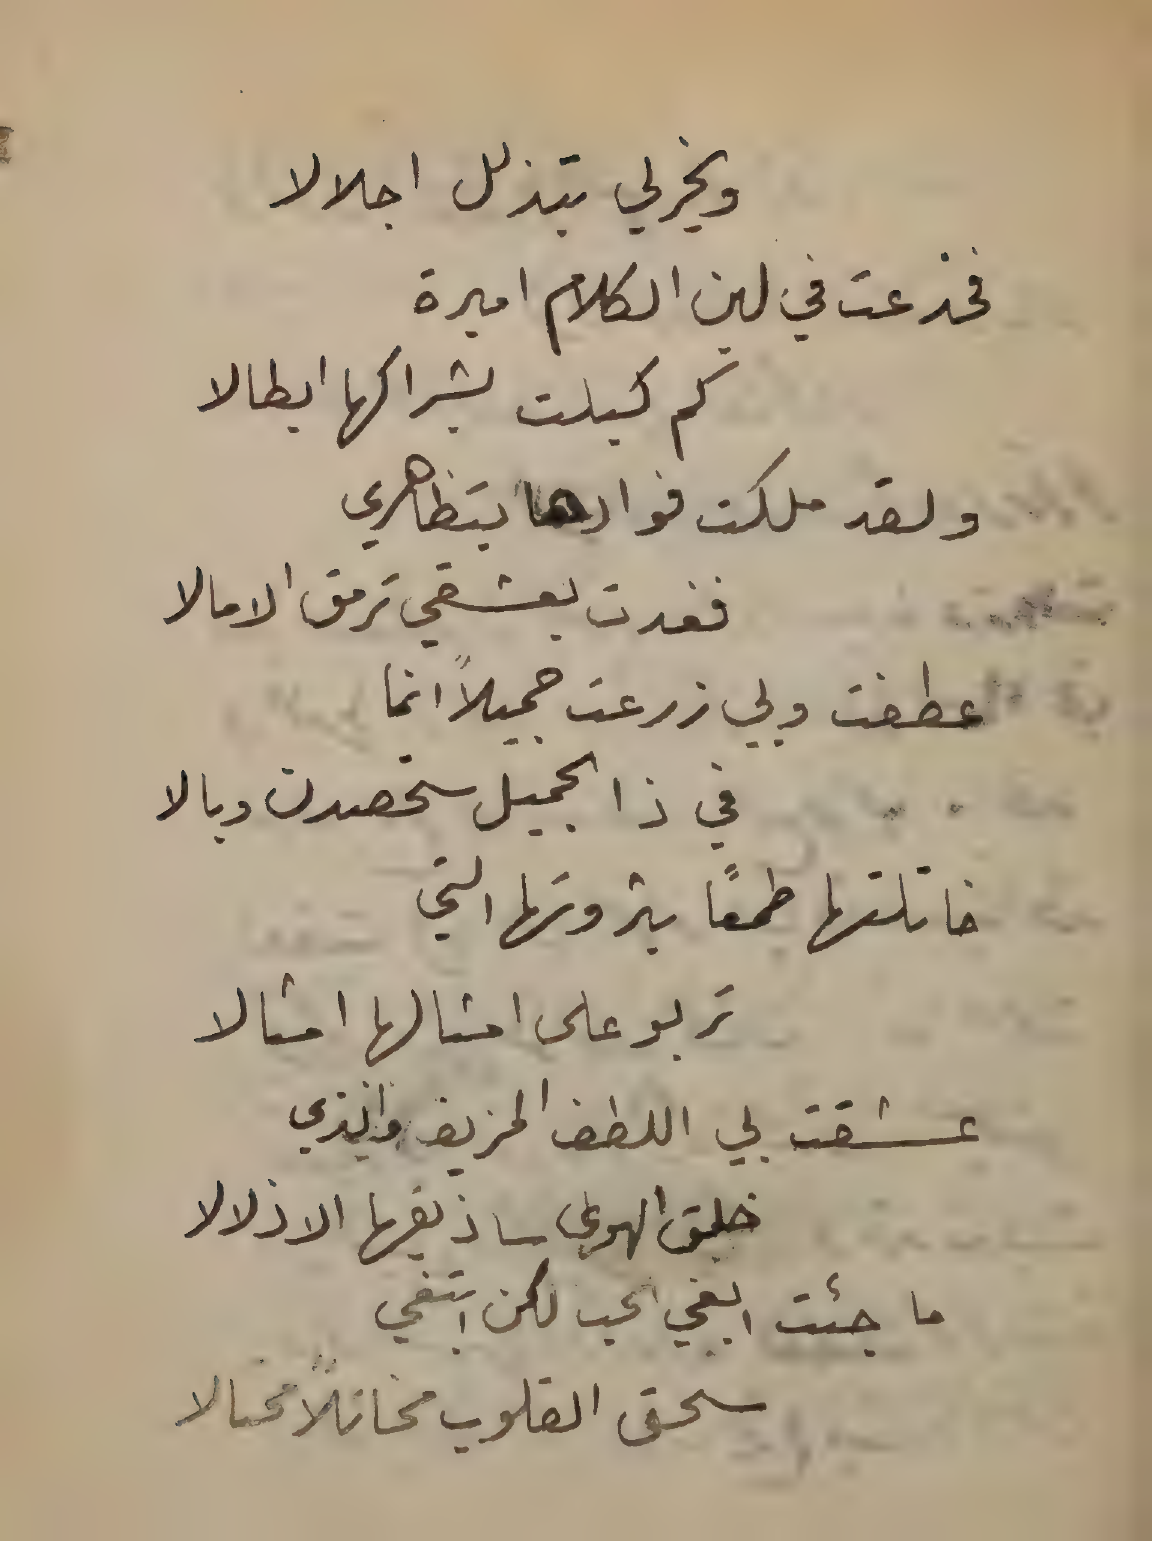 ويخر لي بتذلل اجلالا
فخدعت في لين الكلام اميرة
كم كبلت بشراكها ابطالا
ولقد ملكت فوادها بتظاهري
فغدت بعشقي ترمق الامالا
عطفت وبي زرعت جميلاً انما
في ذا الجميل ستحصدن وبالا
خاتلتها طمعًا بثروتها التي
تربو على امثالها امثالا
عشقت بي اللطف المزيف والذي
خلق الهوى ساذيقها الاذلالا
ما جئت ابغي الحب لكن ابتغي
سحق القلوب مخاتلاً محتالا